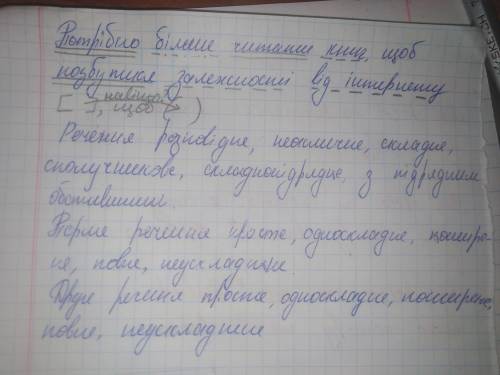 Потрібно більше читати книг, щоб
позбутися залежності від інтернету
[ навіщо? ], щоб )
Речення розповідне, неокличне, складне,
сполучникове, складнопідрядне, з підрядним
обставинним.
Перше речення просте, односкладне, пошире-
не, повне, неускладнене.
Друге речення просте, односкладне, поширене,
повне, неускладнене